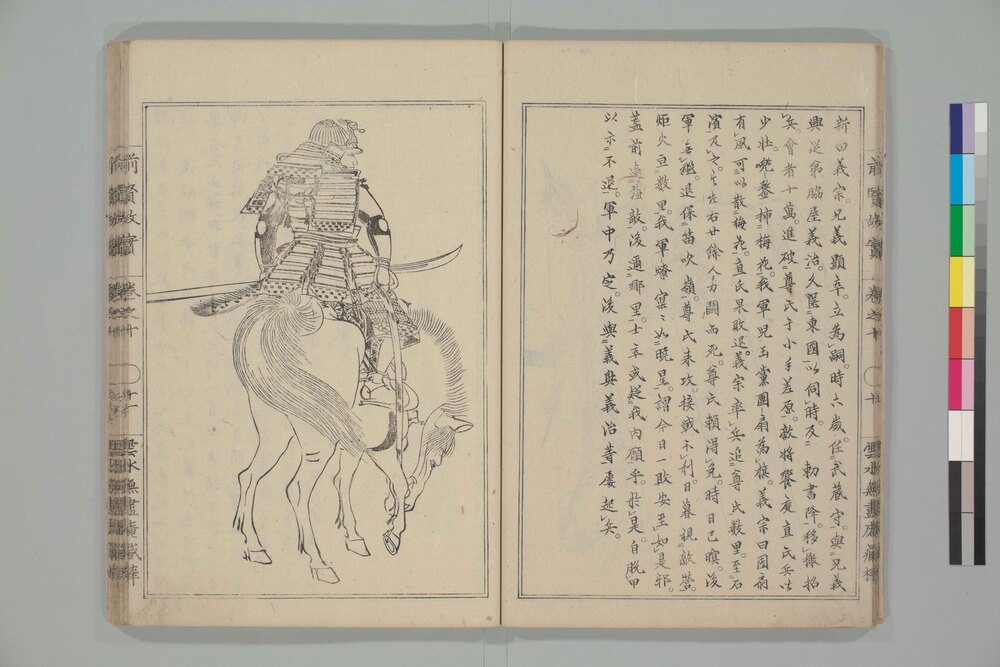 新田義宗。兄義顯卒。立爲嗣。時六歲。任武藏守。與兄義
興從弟脇屋義治。久匿東國以伺時。及勅書降。移檄招
兵。會者十萬。進破尊氏于小手差原。敵將饗庭直氏兵皆
少壯。兜鍪揷梅花。我軍兒玉黨團扇爲旗。義宗曰團扇
有風可以散梅花。直氏果敗退。義宗率兵追尊氏數里。至石
濱及之。左右廿餘人力鬪而死。尊氏賴得免。時日已暝。後
軍無繼。退保笛吹嶺。尊氏來攻。接戰不利。日暮視敵營。
炬火亘數里。我軍燎寥寥如曉星。謂今日一敗安至如是邪。
蓋前無强敵。後邇鄉里。士卒或疑我内顧乎。於是自脱甲
以示不退。軍中乃定。後與義興義治等屢起兵。
前賢故實 卷之十
雲水無盡庵藏梓